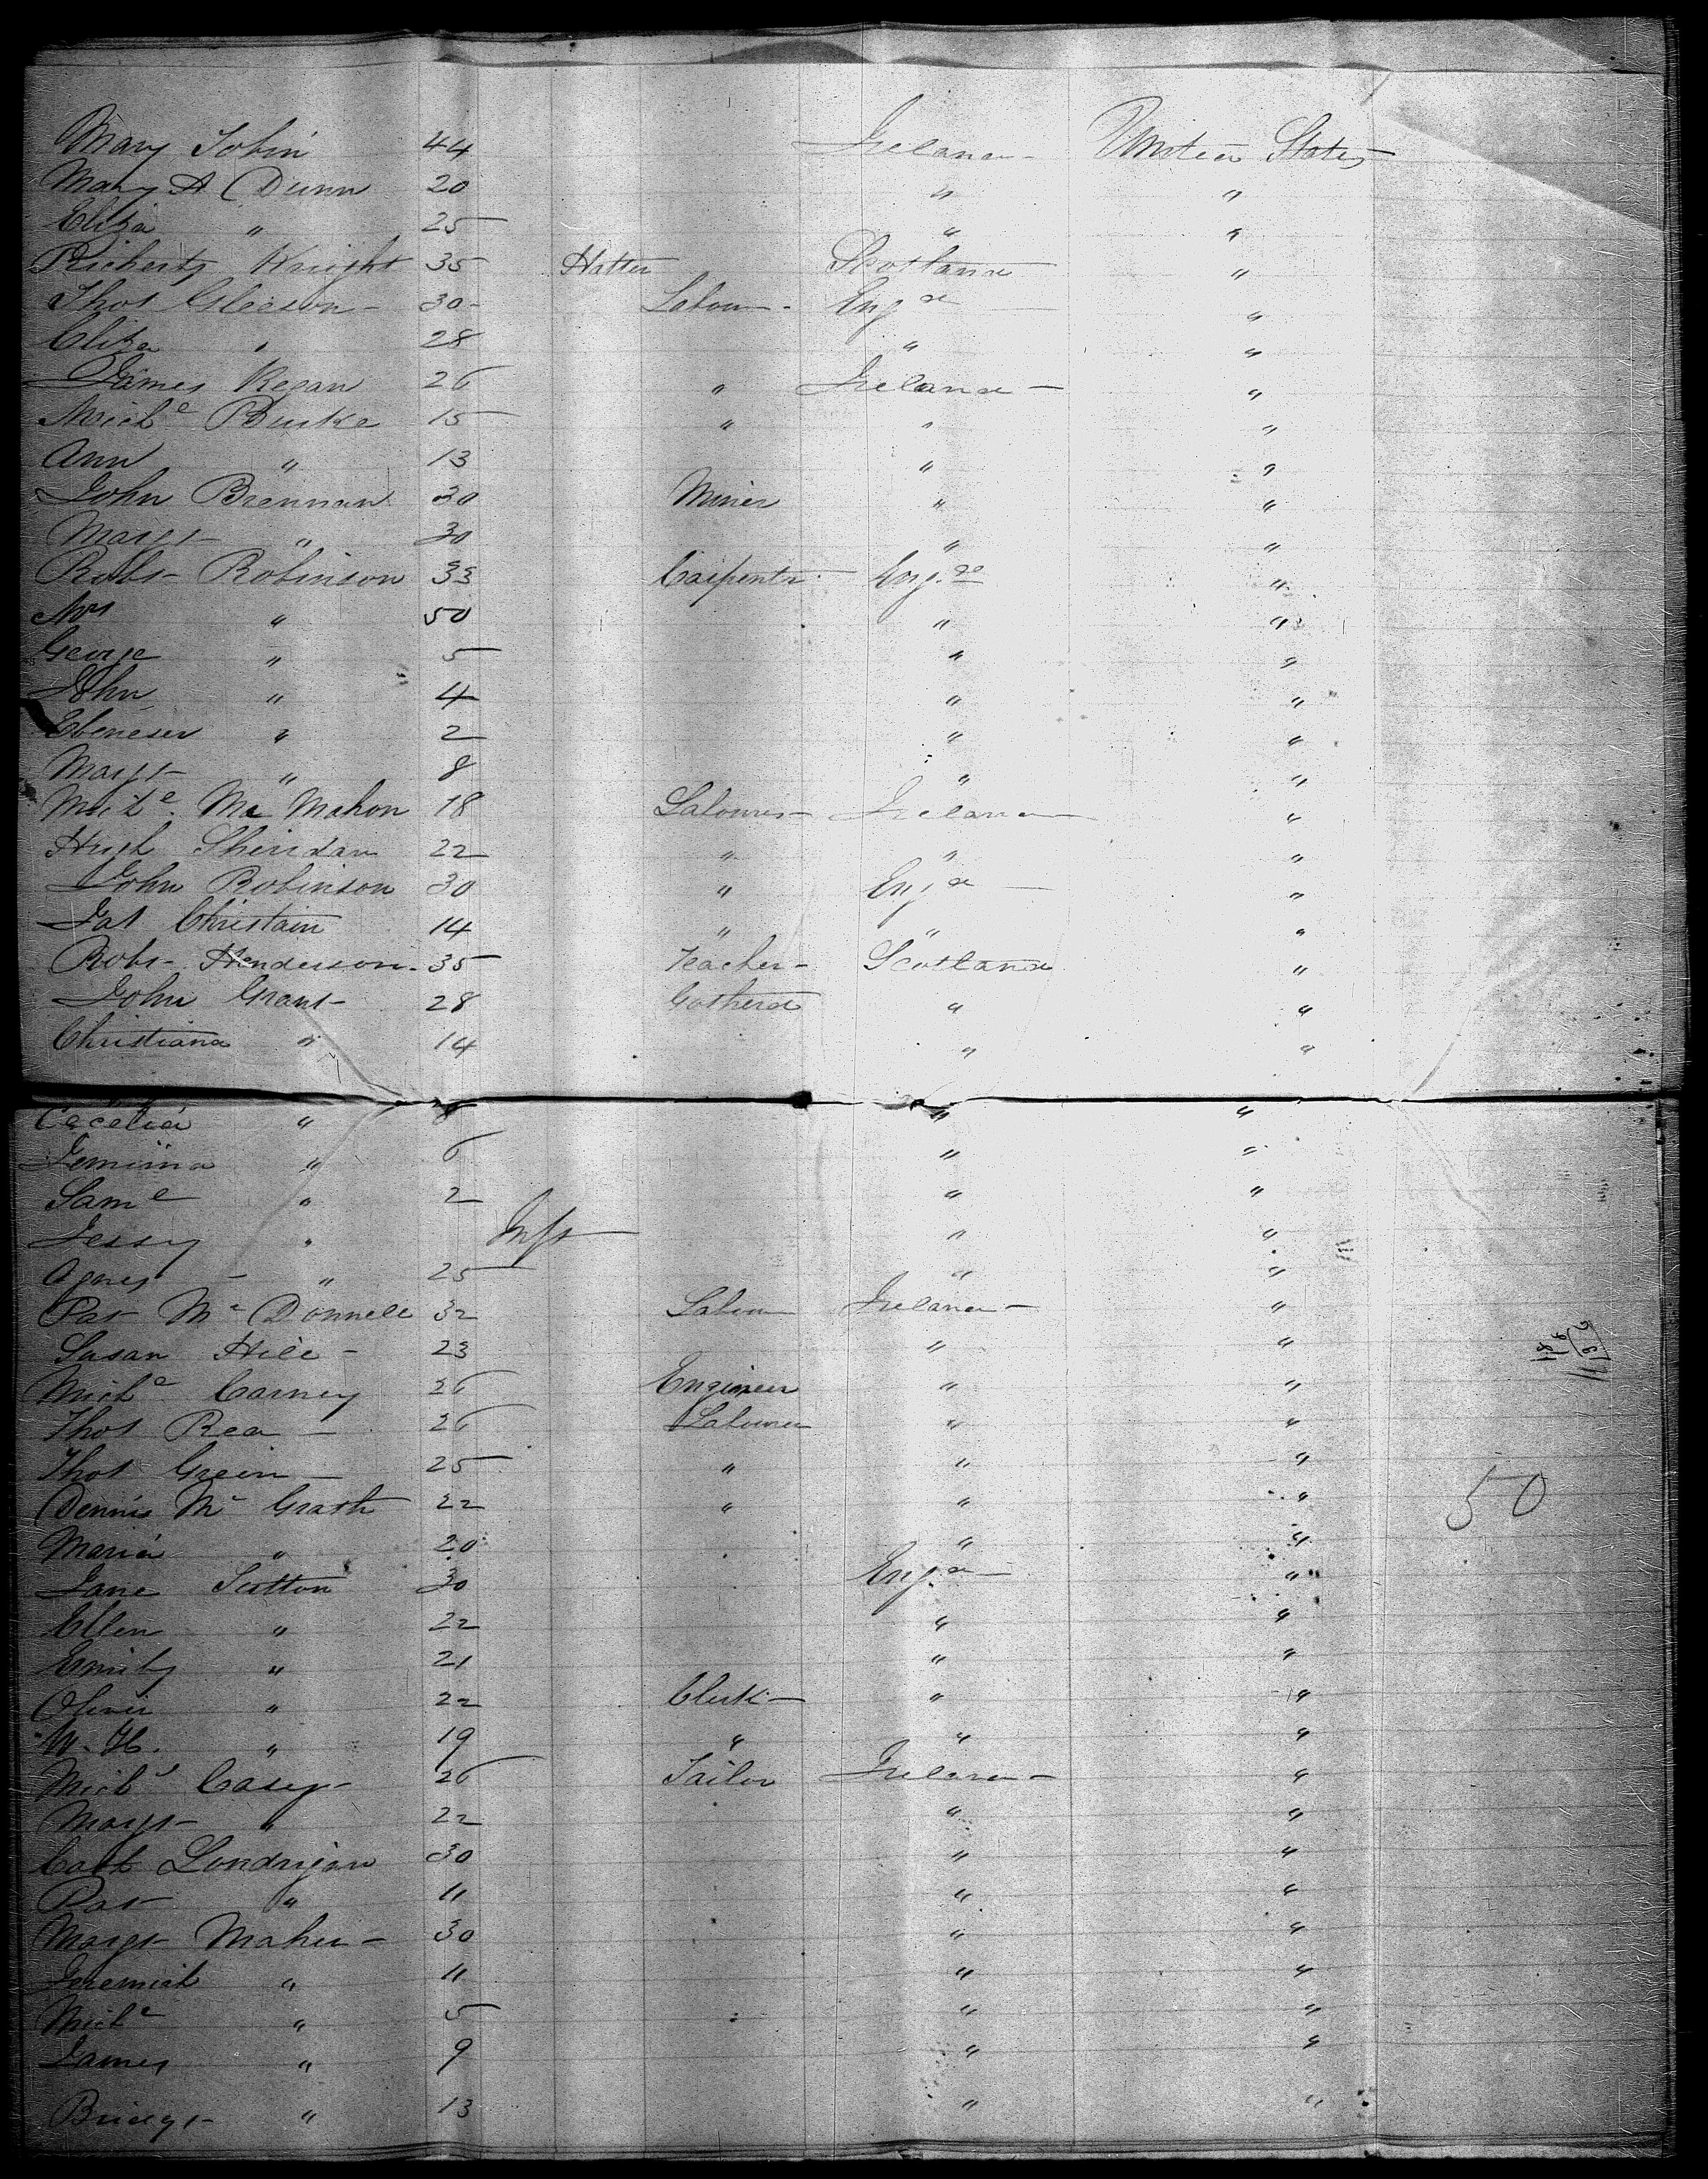 Mary Tobin 44 Ireland United States
Mary A Dunn 20 " "
Eliza " 25 " "
Knight 35 Hatter Scotland "
Thos Gleeson 30 Labour Engd "
Eliza " 28 " "
James Regan 26 " Ireland "
Michl Burke 15 " " "
Ann " 13 " "
John Brennan 30 Miner " "
Margt " 30 " "
Robt Robinson 33 Carpentr Engd "
Mrs " 50 " "
George " 5 " "
John " 4 " "
Ebeneser " 2 " "
Margt " 8 " "
Michl Mc Mahon 18 Labourer Ireland "
Hugh Sheridan 22 " " "
John Robinson 30 " Engd "
Jas Christain 14 " " "
Robt Henderson 35 Teacher Scotland "
John Grant 28 " "
Christiana " 14 " "
Cecelia " 8 " "
Jemima " 6 " "
Saml " 2 " "
Jessy " Inft " "
Agnes " 25 " "
Pat Mc Donnell 32 Labour Ireland "
Susan Hill 23 " "
Michl Carney 26 Engineer " "
Thos Rea 26 Labourer " "
Thos Green 25 " " "
Dennis Mc Grath 22 " " " 50
Maria " 20 " "
Jane Sutton 30 Engd "
Ellen " 22 " "
Emily " 21 " "
Oliver " 22 Clerk " "
W. H. " 19 " " "
Michl Casey 26 Tailor Ireland "
Margt " 22 " "
Cath Londrigan 30 " "
Pat " 11 " "
Margt Maher 30 " "
Jeremiah " 11 " "
Michl " 5 " "
James " 9 " "
Bridgt " 13 " "